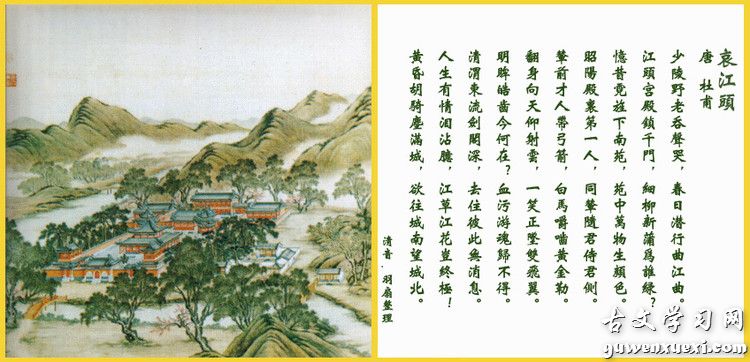 哀江頭
唐 杜甫
少陵野老吞聲哭，春日潛行曲江曲。
江頭宮殿鎖千門，細柳新蒲爲誰綠？
憶昔霓旌下南苑，苑中萬物生顏色。
昭陽殿裏第一人，同輦隨君侍君側。
輦前才人帶弓箭，白馬嚼嚙黃金勒。
翻身向天仰射雲，一笑正墜雙飛翼。
明眸皓齒今何在？血污游魂歸不得。
清渭東流劍閣深，去住彼此無消息。
人生有情淚沾臆，江草江花豈終極！
黃昏胡騎塵滿城，欲往城南望城北。
清音．羽扇整理
古文学习网
yuwenxuexi.com